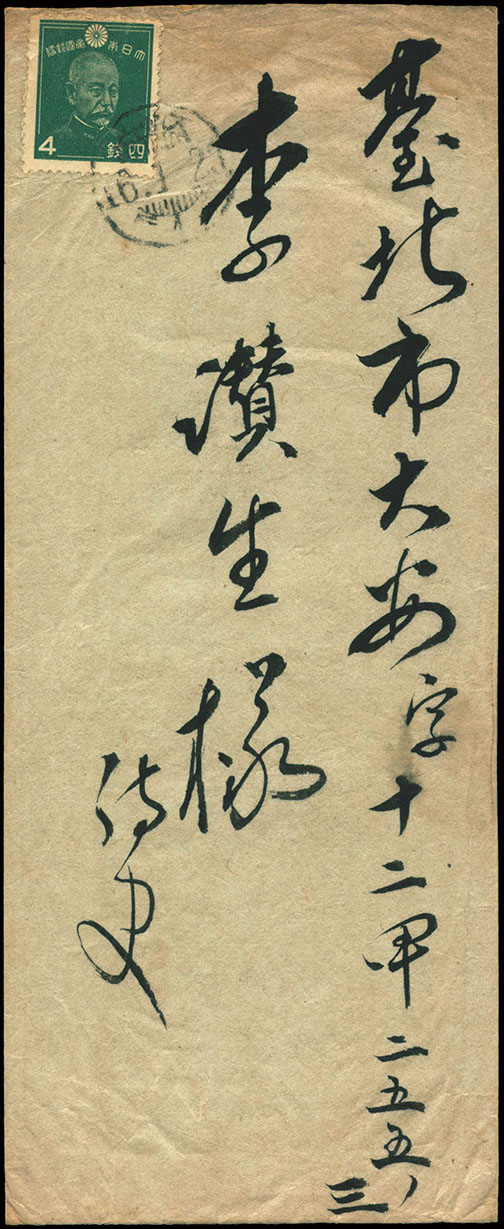 臺北市大安字十二甲二五五ノ三
李讚生様
侍史
大日本帝國郵便
4
四銭